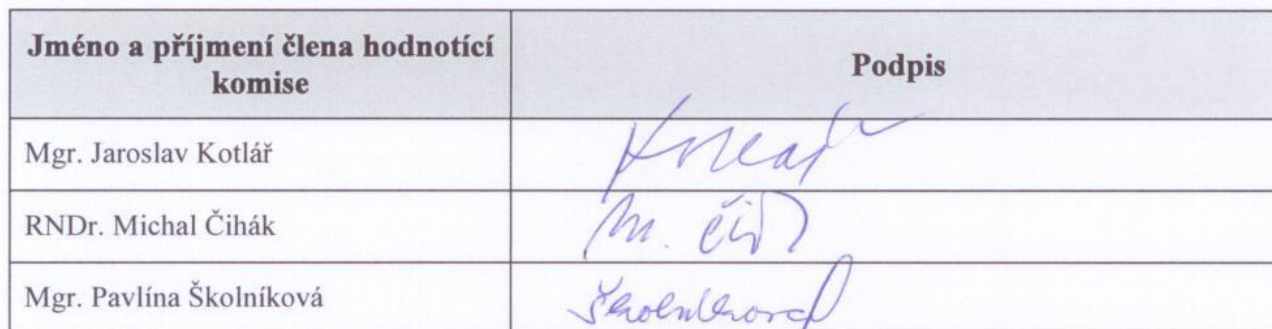 Jméno a příjmení člena hodnotící
komise
Podpis
Mgr. Jaroslav Kotlář
Kotlář
RNDr. Michal Čihák
M. Čih
Mgr. Pavlína Školníková
Školníková